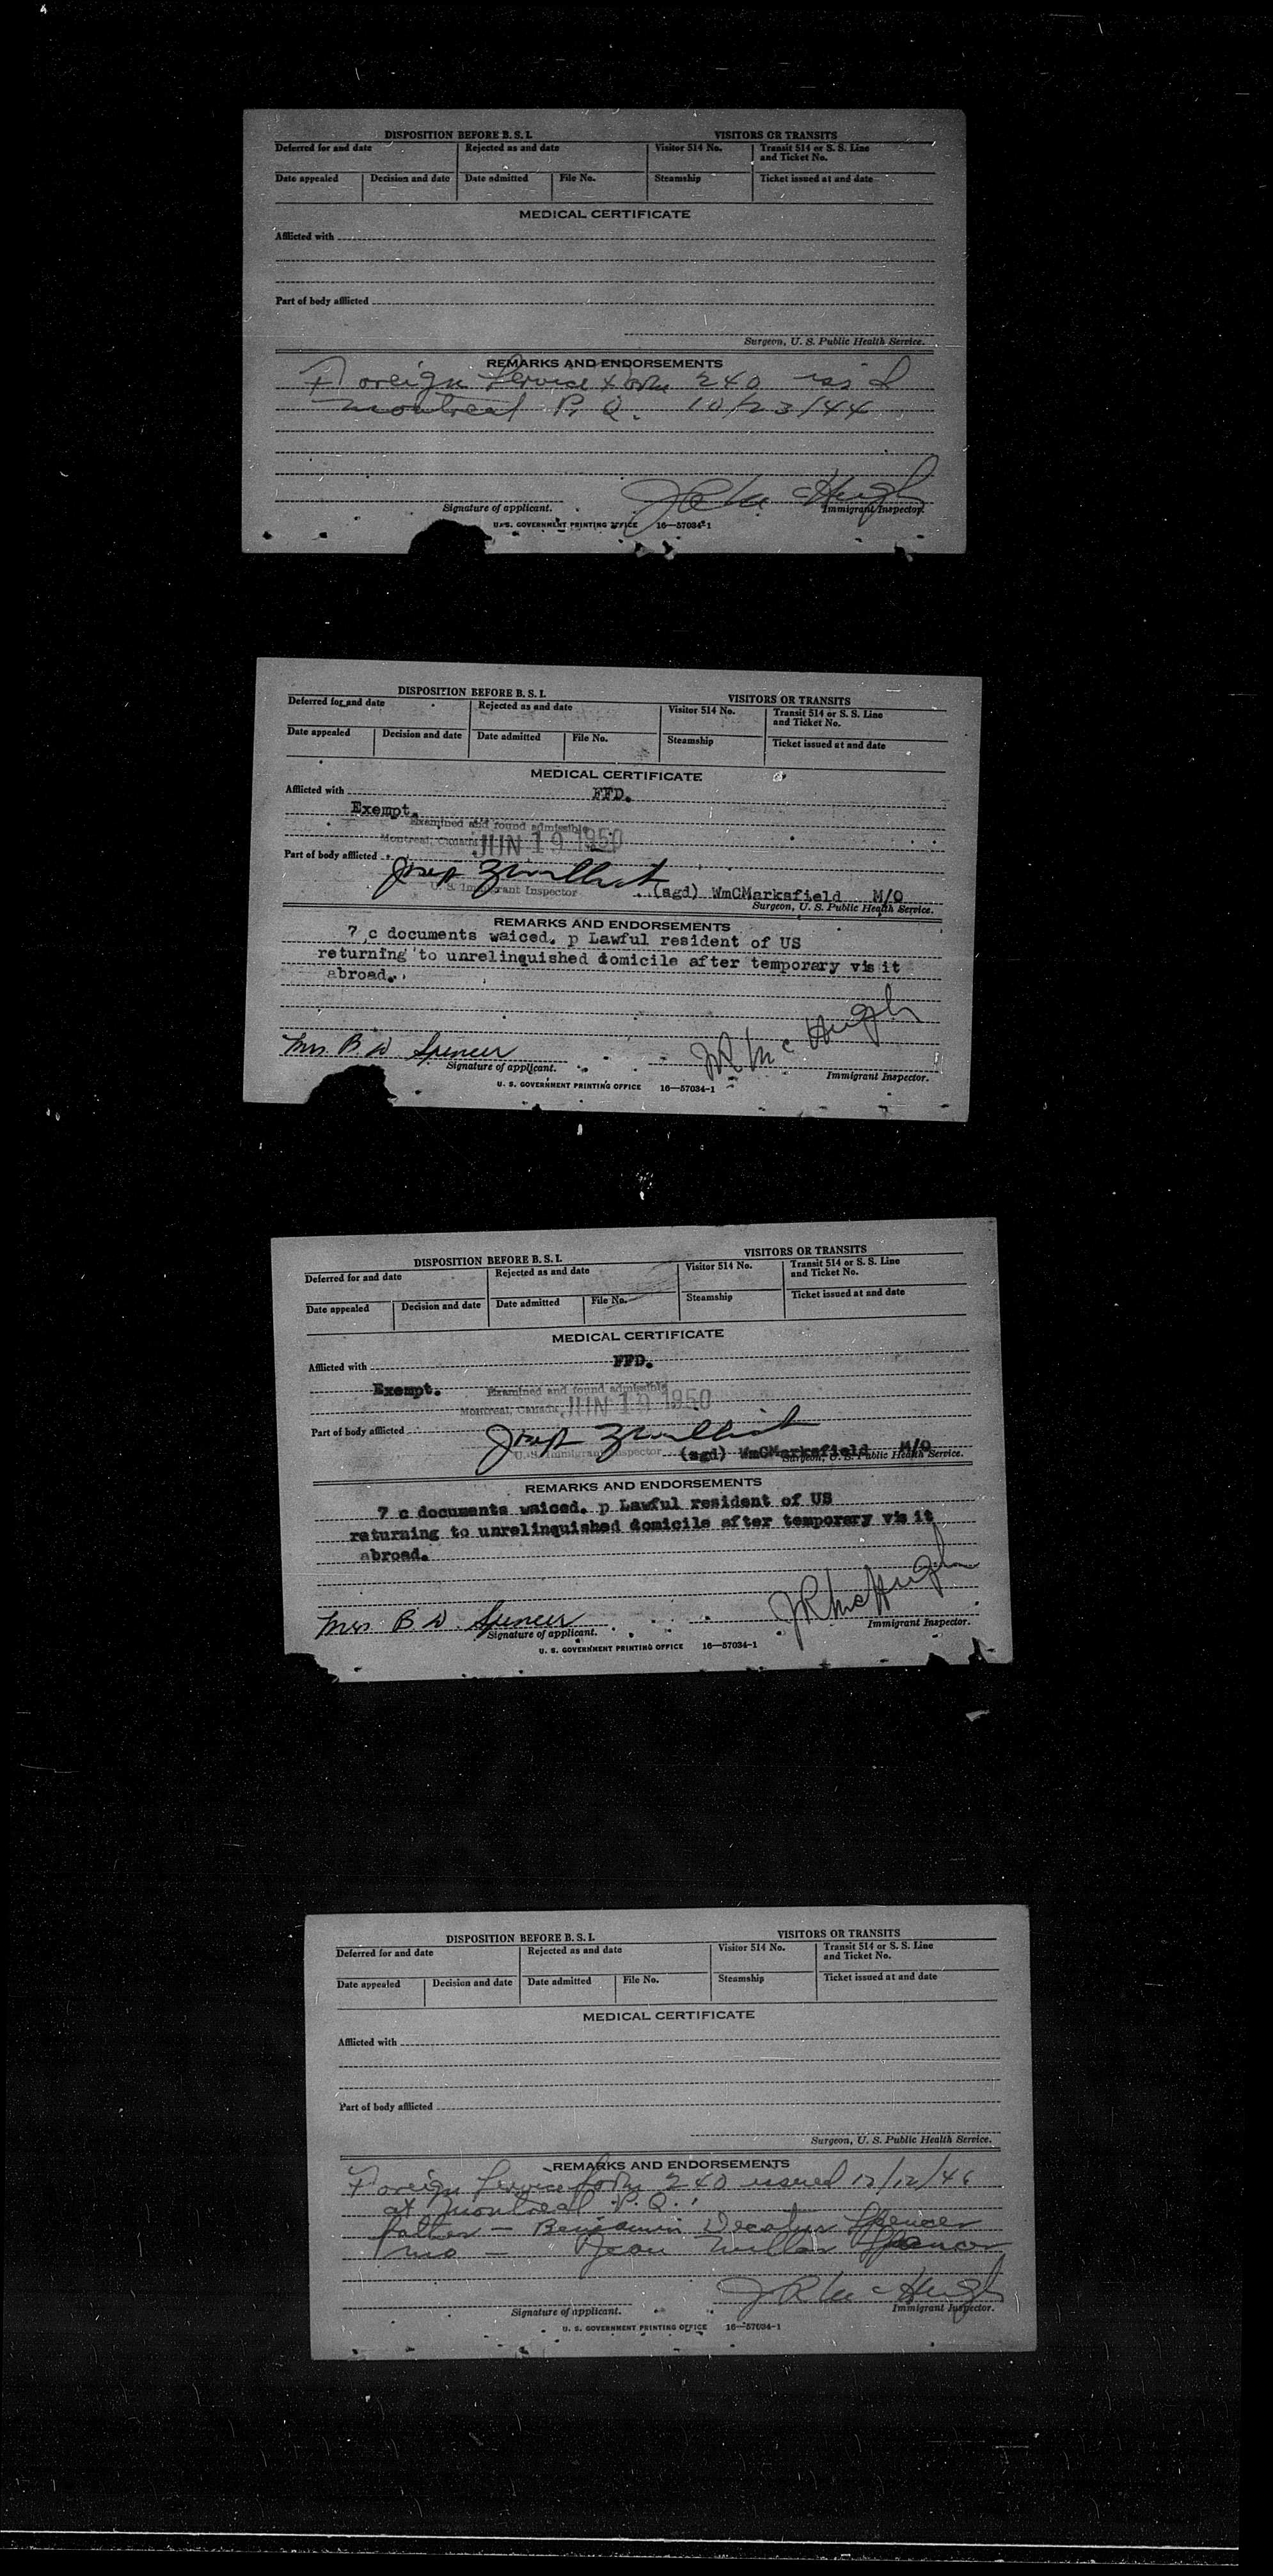 DISPOSITION BEFORE B. S. I. VISITORS OR TRANSITS
Deferred for and date Rejected as and date Visitor 514 No. Transit 514 or S. S. Line and Ticket No.
Date appealed Decision and date Date admitted File No. Steamship Ticket issued at and date
MEDICAL CERTIFICATE
Afflicted with
Part of body afflicted
Surgeon, U. S. Public Health Service.
REMARKS AND ENDORSEMENTS
Foreign Service Form 240 iss'd
Montreal P. Q. 10/23/44
J R McHugh
Signature of applicant. Immigrant Inspector.
U. S. GOVERNMENT PRINTING OFFICE 16—57034-1
DISPOSITION BEFORE B. S. I. VISITORS OR TRANSITS
Deferred for and date Rejected as and date Visitor 514 No. Transit 514 or S. S. Line and Ticket No.
Date appealed Decision and date Date admitted File No. Steamship Ticket issued at and date
MEDICAL CERTIFICATE
Afflicted with FFD.
Exempt.
Examined and found admissible
Montreal, Canada JUN 19 1950
Part of body afflicted
Joseph
U. S. Immigrant Inspector (sgd) WmCMarksfield M/O
Surgeon, U. S. Public Health Service.
REMARKS AND ENDORSEMENTS
7 c documents waiced. p Lawful resident of US
returning to unrelinquished domicile after temporary visit
abroad.
Mrs B D Spencer JR McHugh
Signature of applicant. Immigrant Inspector.
U. S. GOVERNMENT PRINTING OFFICE 16—57034-1
DISPOSITION BEFORE B. S. I. VISITORS OR TRANSITS
Deferred for and date Rejected as and date Visitor 514 No. Transit 514 or S. S. Line and Ticket No.
Date appealed Decision and date Date admitted File No. Steamship Ticket issued at and date
MEDICAL CERTIFICATE
Afflicted with FFD.
Exempt. Examined and found admissible
Montreal, Canada, JUN 19 1950
Part of body afflicted
Joseph
U. S. Immigrant Inspector (sgd) WmCMarksfield M/O
Surgeon, U. S. Public Health Service.
REMARKS AND ENDORSEMENTS
7 c documents waiced. p Lawful resident of US
returning to unrelinquished domicile after temporary visit
abroad.
Mrs B D Spencer JR McHugh
Signature of applicant. Immigrant Inspector.
U. S. GOVERNMENT PRINTING OFFICE 16—57034-1
DISPOSITION BEFORE B. S. I. VISITORS OR TRANSITS
Deferred for and date Rejected as and date Visitor 514 No. Transit 514 or S. S. Line and Ticket No.
Date appealed Decision and date Date admitted File No. Steamship Ticket issued at and date
MEDICAL CERTIFICATE
Afflicted with
Part of body afflicted
Surgeon, U. S. Public Health Service.
REMARKS AND ENDORSEMENTS
Foreign Service Form 240 issued 12/12/46
at Montreal P. Q.
father — Benjamin Decatur Spencer
mo — Jean Millar Spencer
J R McHugh
Signature of applicant. Immigrant Inspector.
U. S. GOVERNMENT PRINTING OFFICE 16—57034-1